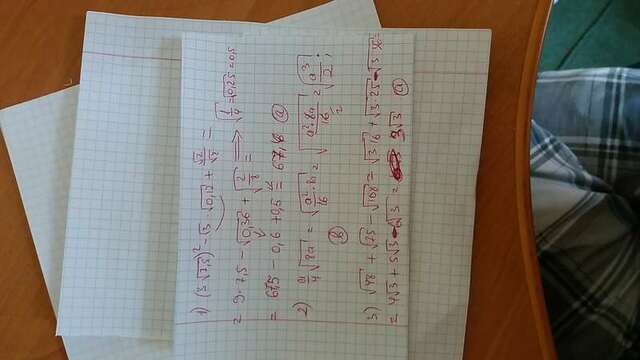 1) (3·√7,5)² - √3 · √0,12 + √2/√8 =
= 9·7,5 - √0,36 + √2/8 = ⟹ √1/4 = √0,25 = 0,5
= 67,5 - 0,6 + 0,5 = 67,4 (a)
2) a/4 √8a = √a²/16 · 8a = √a²·8a/16 = √a³/2 ;
2
(b)
3) √48 + √75 - √108 = √3·16 + √3·25 - √3·36 =
= 4√3 + 5√3 - 6√3 = 3√3 (a)